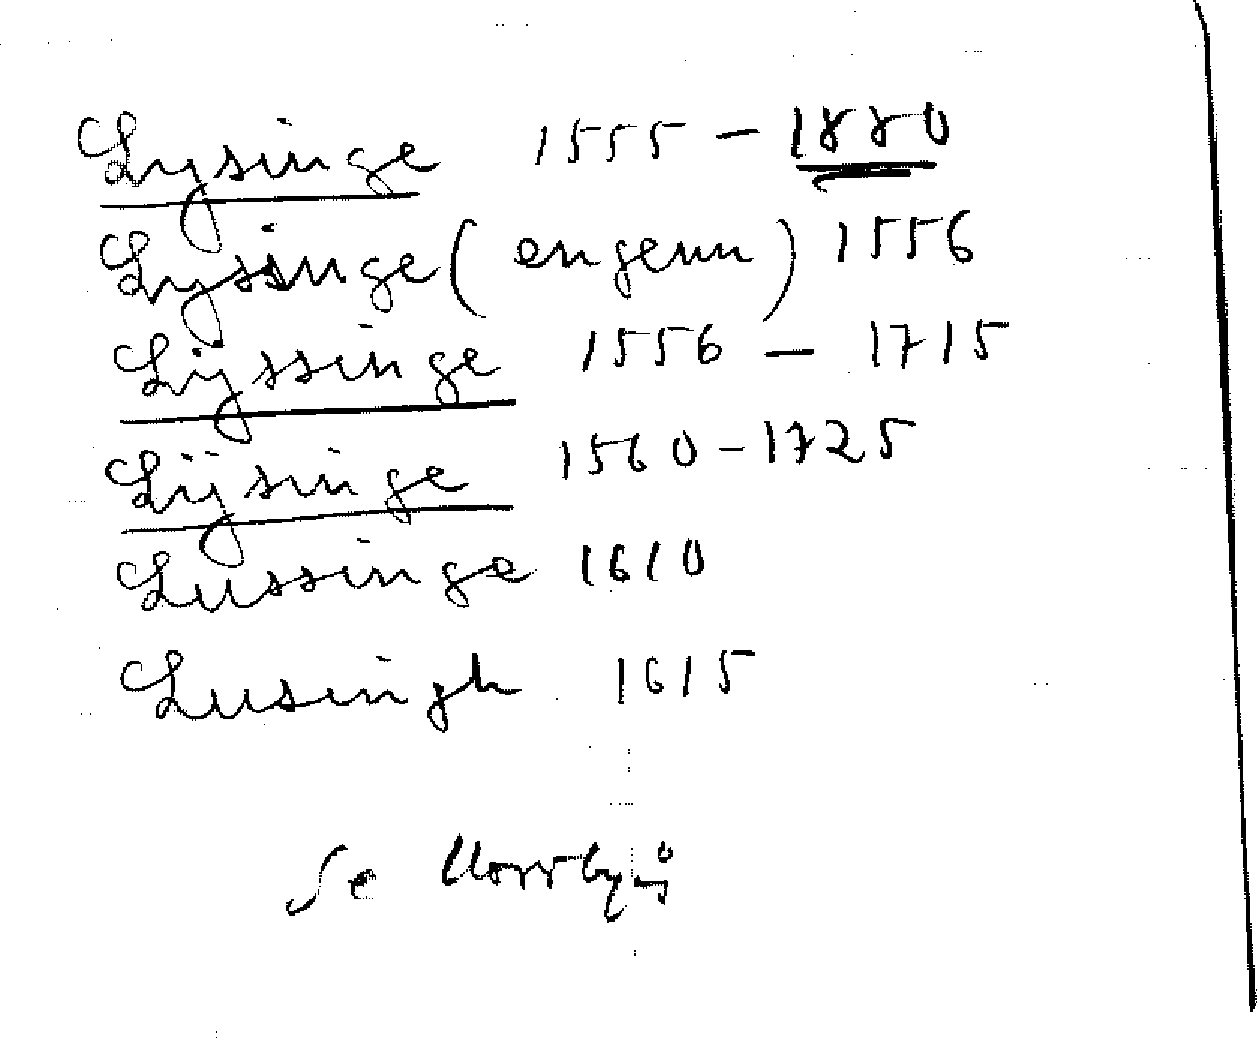 Lysinge 1555 – 1880
Lyssinge (engenn) 1556
Lÿssinge 1556 – 1715
Lÿsinge 1560 – 1725
Lussinge 1610
Lusingh 1615
Se Norrbyås